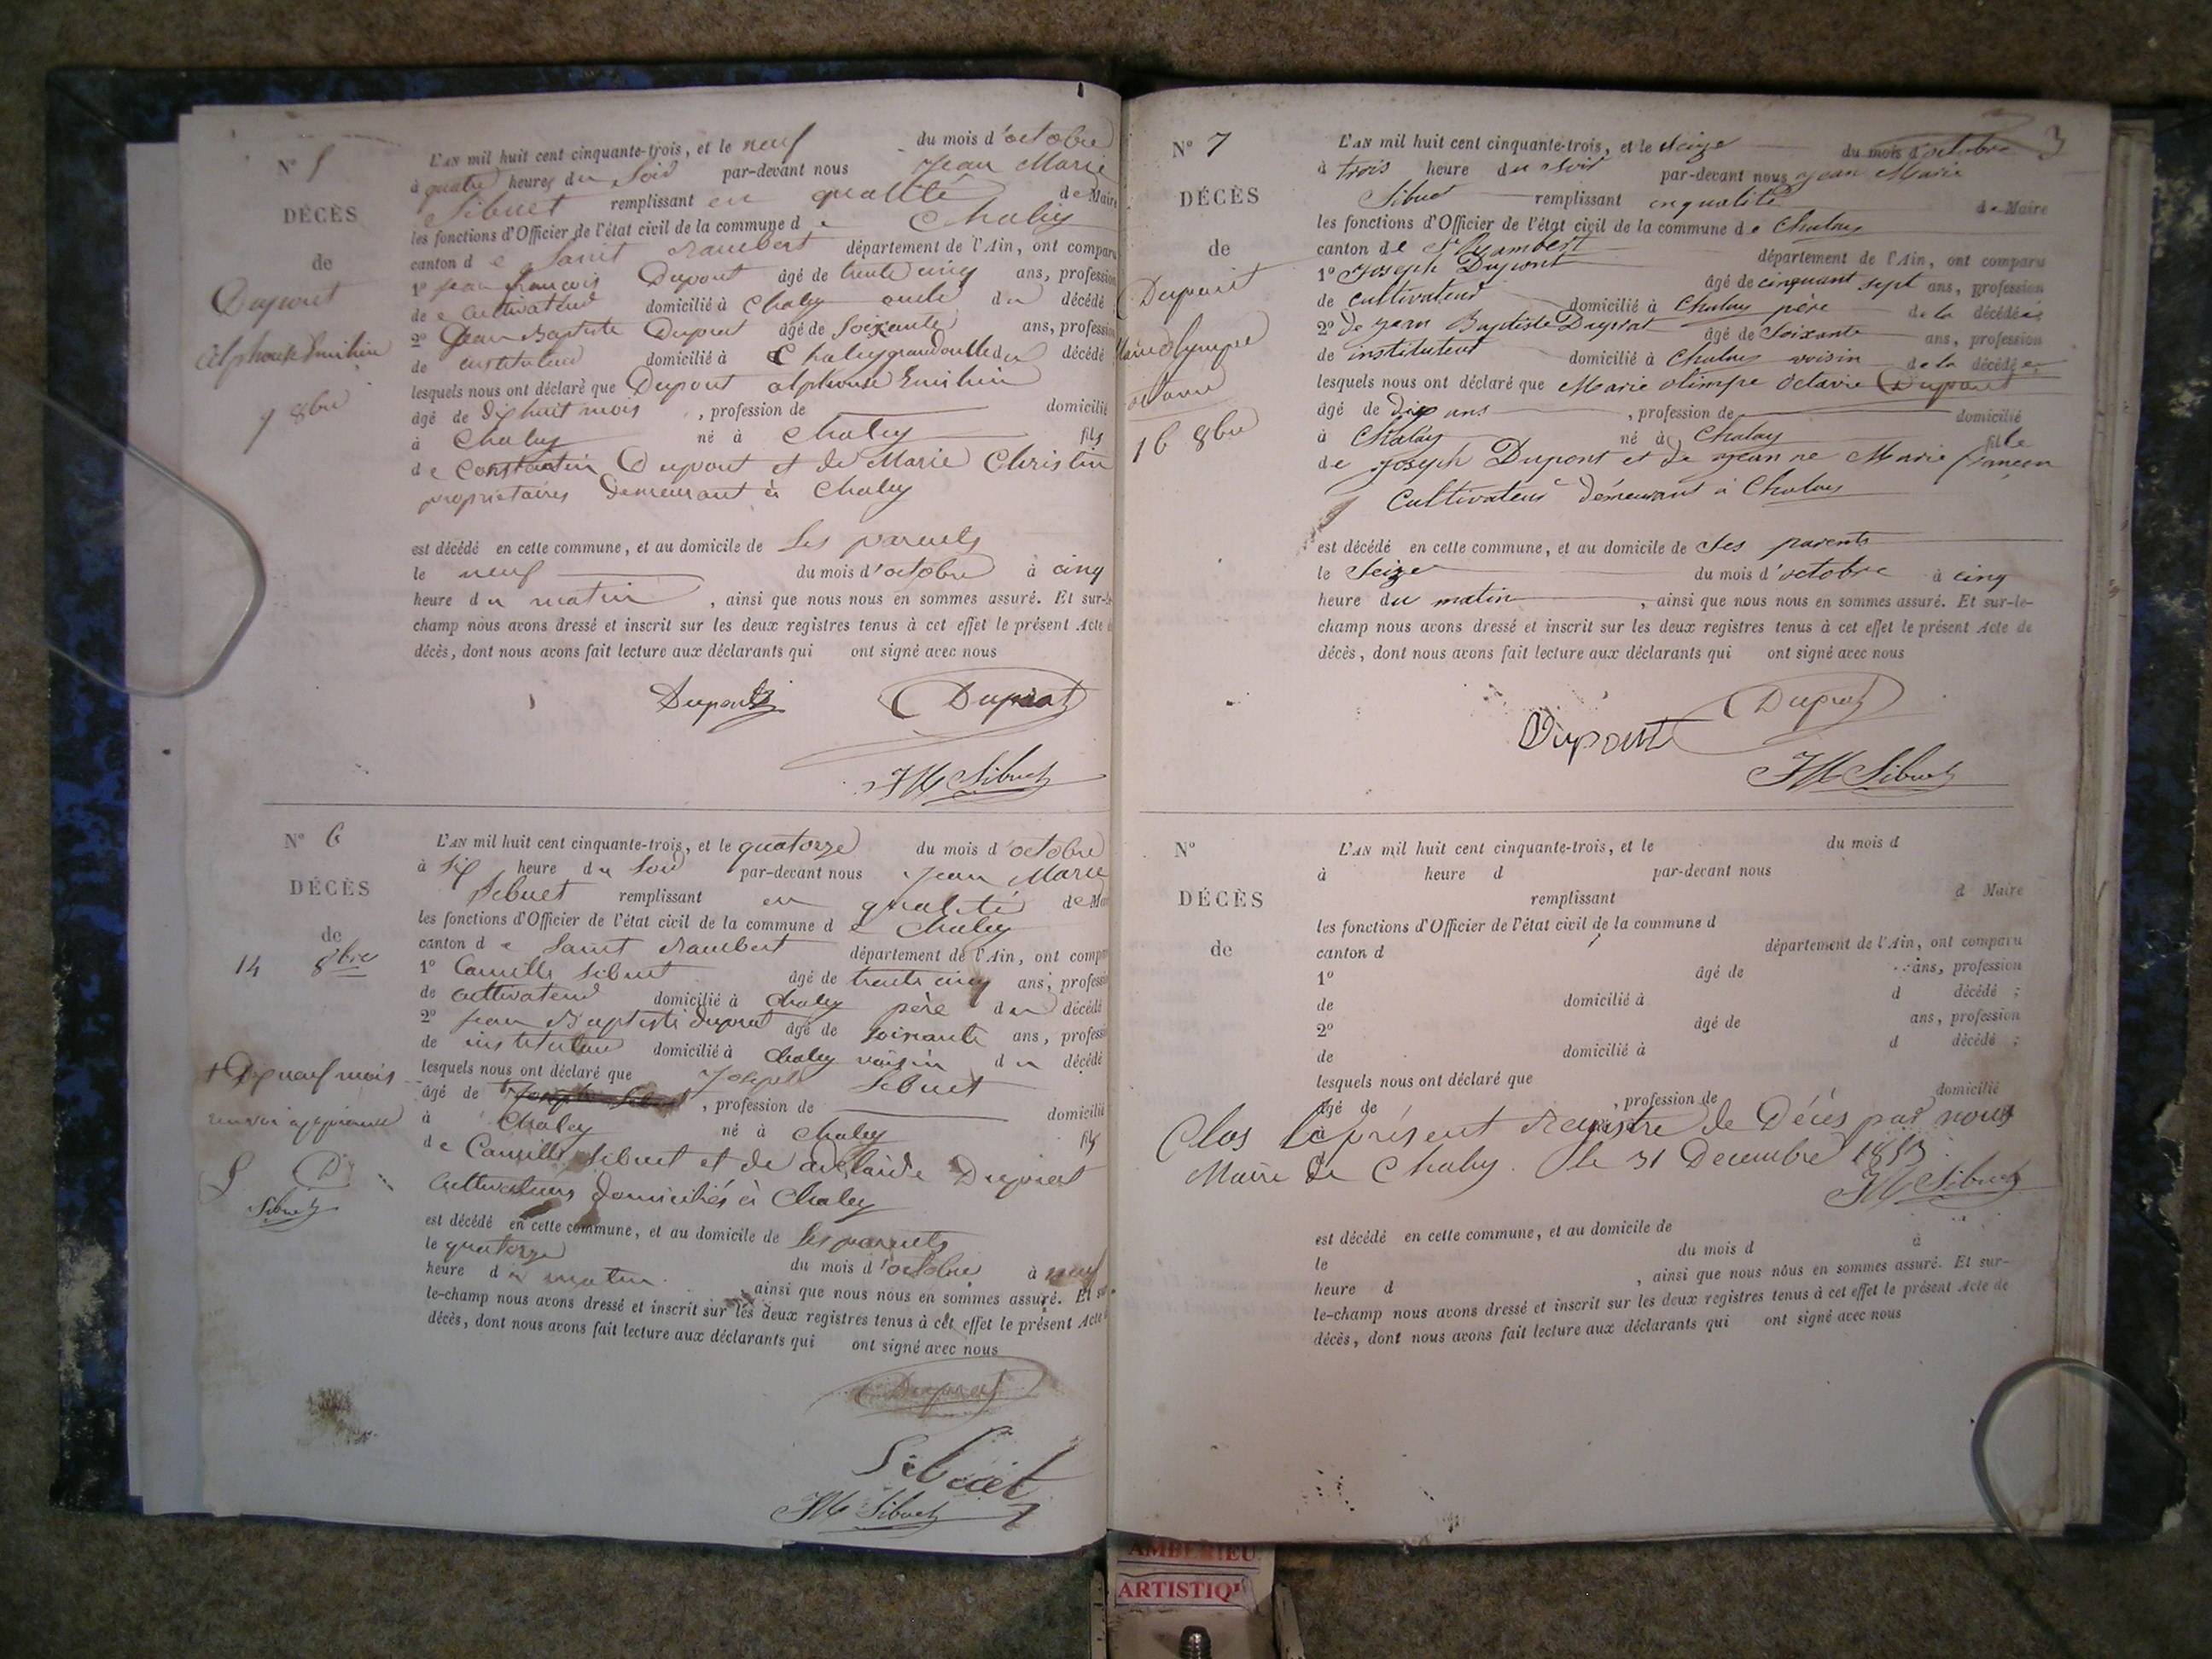 N° 5
DÉCÈS
de
Dupont
Alphonse Emilien
9 8bre
L'AN mil huit cent cinquante-trois, et le neuf du mois d'octobre
à quatre heures du soir par-devant nous Jean Marie
Sibuet remplissant en qualité de Maire
les fonctions d'Officier de l'état civil de la commune de Chaley
canton de Saint Rambert département de l'Ain, ont comparu
1° Jean françois Dupont âgé de trente cinq ans, profession
de cultivateur domicilié à Chaley oncle du décédé
2° Jean Baptiste Duprat âgé de soixante ans, profession
de instituteur domicilié à Chaley grand oncle du décédé
lesquels nous ont déclaré que Dupont alphonse Emilien
âgé de dix huit mois, profession de domicilié
à Chaley né à Chaley fils
de Constantin Dupont et de Marie Christin
propriétaires demeurant à Chaley
est décédé en cette commune, et au domicile de ses parents
le neuf du mois d'octobre à cinq
heure du matin, ainsi que nous nous en sommes assuré. Et sur-le-
champ nous avons dressé et inscrit sur les deux registres tenus à cet effet le présent Acte de
décès, dont nous avons fait lecture aux déclarants qui ont signé avec nous
Dupont Duprat
JM Sibuet
N° 6
DÉCÈS
de
14 8bre
+ Dix neuf mois
renvoi approuvé
S D
Sibuet
L'AN mil huit cent cinquante-trois, et le quatorze du mois d'octobre
à six heure du soir par-devant nous Jean Marie
Sibuet remplissant en qualité de Maire
les fonctions d'Officier de l'état civil de la commune de Chaley
canton de Saint Rambert département de l'Ain, ont comparu
1° Camille Sibuet âgé de trente cinq ans, profession
de cultivateur domicilié à Chaley père du décédé
2° Jean Baptiste duprat âgé de soixante ans, profession
de instituteur domicilié à Chaley voisin du décédé
lesquels nous ont déclaré que Joseph Sibuet
âgé de + Joseph Sibuet, profession de domicilié
à Chaley né à Chaley fils
de Camille Sibuet et de adélaïde Duprat
Cultivateurs domiciliés à Chaley
est décédé en cette commune, et au domicile de ses parents
le quatorze du mois d'octobre à neuf
heure du matin, ainsi que nous nous en sommes assuré. Et sur-
le-champ nous avons dressé et inscrit sur les deux registres tenus à cet effet le présent Acte de
décès, dont nous avons fait lecture aux déclarants qui ont signé avec nous
Duprat
Sibuet
JM Sibuet
3
N° 7
DÉCÈS
de
Dupont
Marie olympe
octavie
16 8bre
L'AN mil huit cent cinquante-trois, et le seize du mois d'octobre
à trois heure du soir par-devant nous Jean Marie
Sibuet remplissant en qualité de Maire
les fonctions d'Officier de l'état civil de la commune de Chaley
canton de St Rambert département de l'Ain, ont comparu
1° Joseph Dupont âgé de cinquant sept ans, profession
de cultivateur domicilié à Chaley père de la décédée
2° de jean Baptiste Duprat âgé de soixante ans, profession
de instituteur domicilié à Chaley voisin de la décédée
lesquels nous ont déclaré que Marie olimpe octavie Dupont
âgé de dix ans, profession de domicilié
à Chaley né à Chaley fille
de Joseph Dupont et de jeanne Marie
Cultivateur demeurant à Chaley
est décédé en cette commune, et au domicile de ses parents
le seize du mois d'octobre à cinq
heure du matin, ainsi que nous nous en sommes assuré. Et sur-le-
champ nous avons dressé et inscrit sur les deux registres tenus à cet effet le présent Acte de
décès, dont nous avons fait lecture aux déclarants qui ont signé avec nous
Dupont Duprat
JM Sibuet
N°
DÉCÈS
de
L'AN mil huit cent cinquante-trois, et le du mois d
à heure d par-devant nous
remplissant d Maire
les fonctions d'Officier de l'état civil de la commune d
canton d département de l'Ain, ont comparu
1° âgé de ans, profession
de domicilié à d décédé ;
2° âgé de ans, profession
de domicilié à d décédé ;
lesquels nous ont déclaré que
âgé de, profession de domicilié
à
Clos le présent Registre de Décès par nous
Maire de Chaley. le 31 Decembre 1853
JM Sibuet
est décédé en cette commune, et au domicile de
le du mois d à
heure d, ainsi que nous nous en sommes assuré. Et sur-
le-champ nous avons dressé et inscrit sur les deux registres tenus à cet effet le présent Acte de
décès, dont nous avons fait lecture aux déclarants qui ont signé avec nous
AMBERIEU
ARTISTIQUE